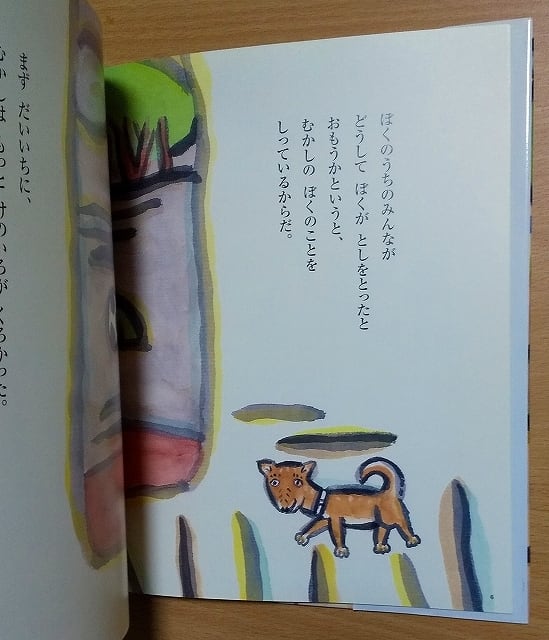 ぼくのうちのみんなが
どうして ぼくが としをとったと
おもうかというと、
むかしの ぼくのことを
しっているからだ。
まず だいいちに、
むかしは もっと けのいろが くろかった。
6